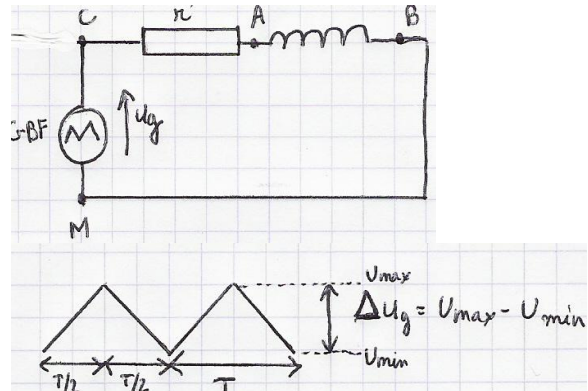 C
r
A
B
G-BF
Ug
M
Umax
ΔUg = Umax - Umin
Umin
T/2
T/2
T